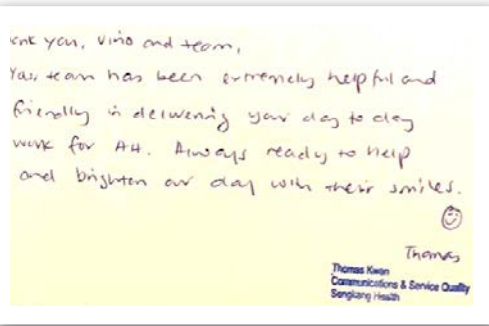 ank you, Vino and team,
Your team has been extremely helpful and
friendly in delivering your day to day
work for AH. Always ready to help
and brighten our day with their smiles.
Thomas
Thomas Kwan
Communications & Service Quality
Sengkang Health